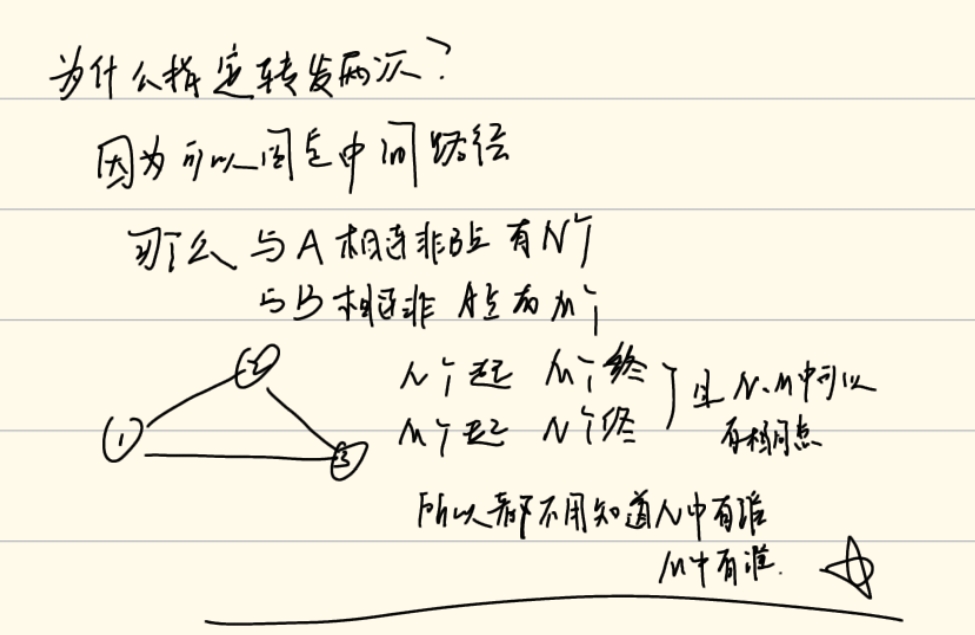 为什么指定转发两次?
因为可以固定中间路径
那么 与A相连非B点 有N个
与B相连非 A点有M个
N个起 M个终
M个起 N个终
且 N、M中可以
有相同点
1
2
3
所以都不用知道N中有谁
M中有谁.